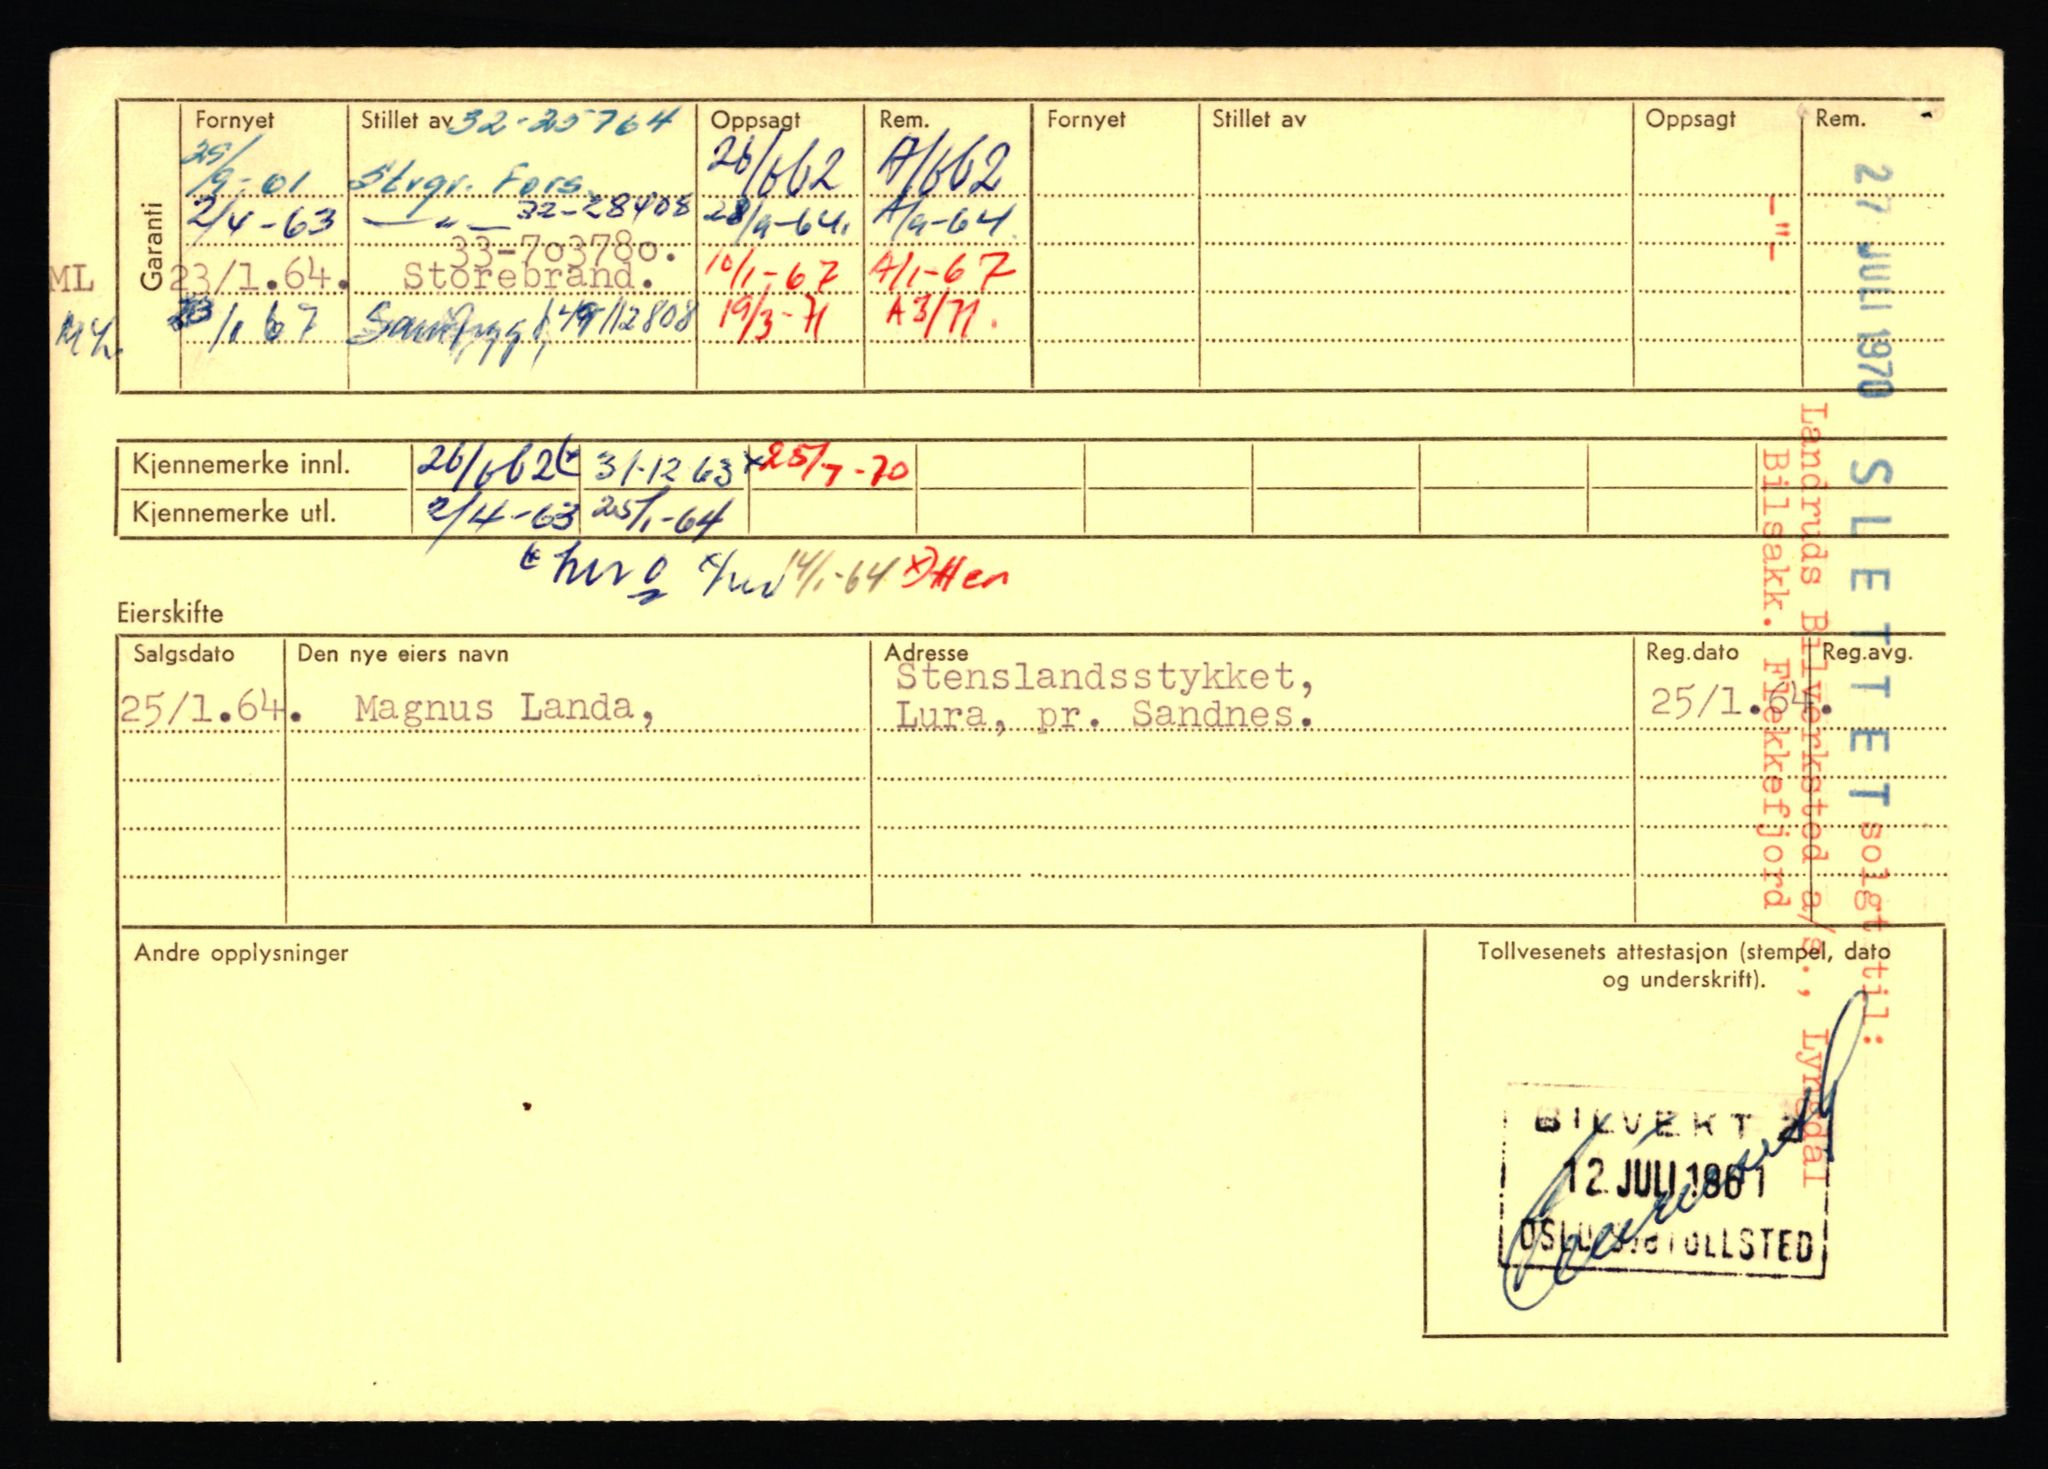 Garanti
Fornyet Stillet av 32-25764 Oppsagt Rem. Fornyet Stillet av Oppsagt Rem.
25/9-61 Strgr. Fors. 26/6 62 A/6 62
2/4-63 — " — 32-28408 28/9-64. A/9-64.
33-703780.
ML 23/1.64. Storebrand. 10/1-67 A/1-67
ML. 23/1 67 Samtrygd, 49/112808 19/3-71 A3/71.
Kjennemerke innl. 26/6 62 31-12 63 x 25/7-70
Kjennemerke utl. 2/4-63 25/1-64
14/1-64 x)
Eierskifte
Salgsdato Den nye eiers navn Adresse Reg.dato Reg.avg.
25/1.64. Magnus Landa, Stenslandsstykket, 25/1.64.
Lura, pr. Sandnes.
Andre opplysninger
Tollvesenets attestasjon (stempel, dato
og underskrift).
BILVEKT
12 JULI 1961
27 JULI 1970 SLETTET solgt til:
Landruds Bilverksted a/s., Lyngdal
-"- Bilsakk. Flekkefjord